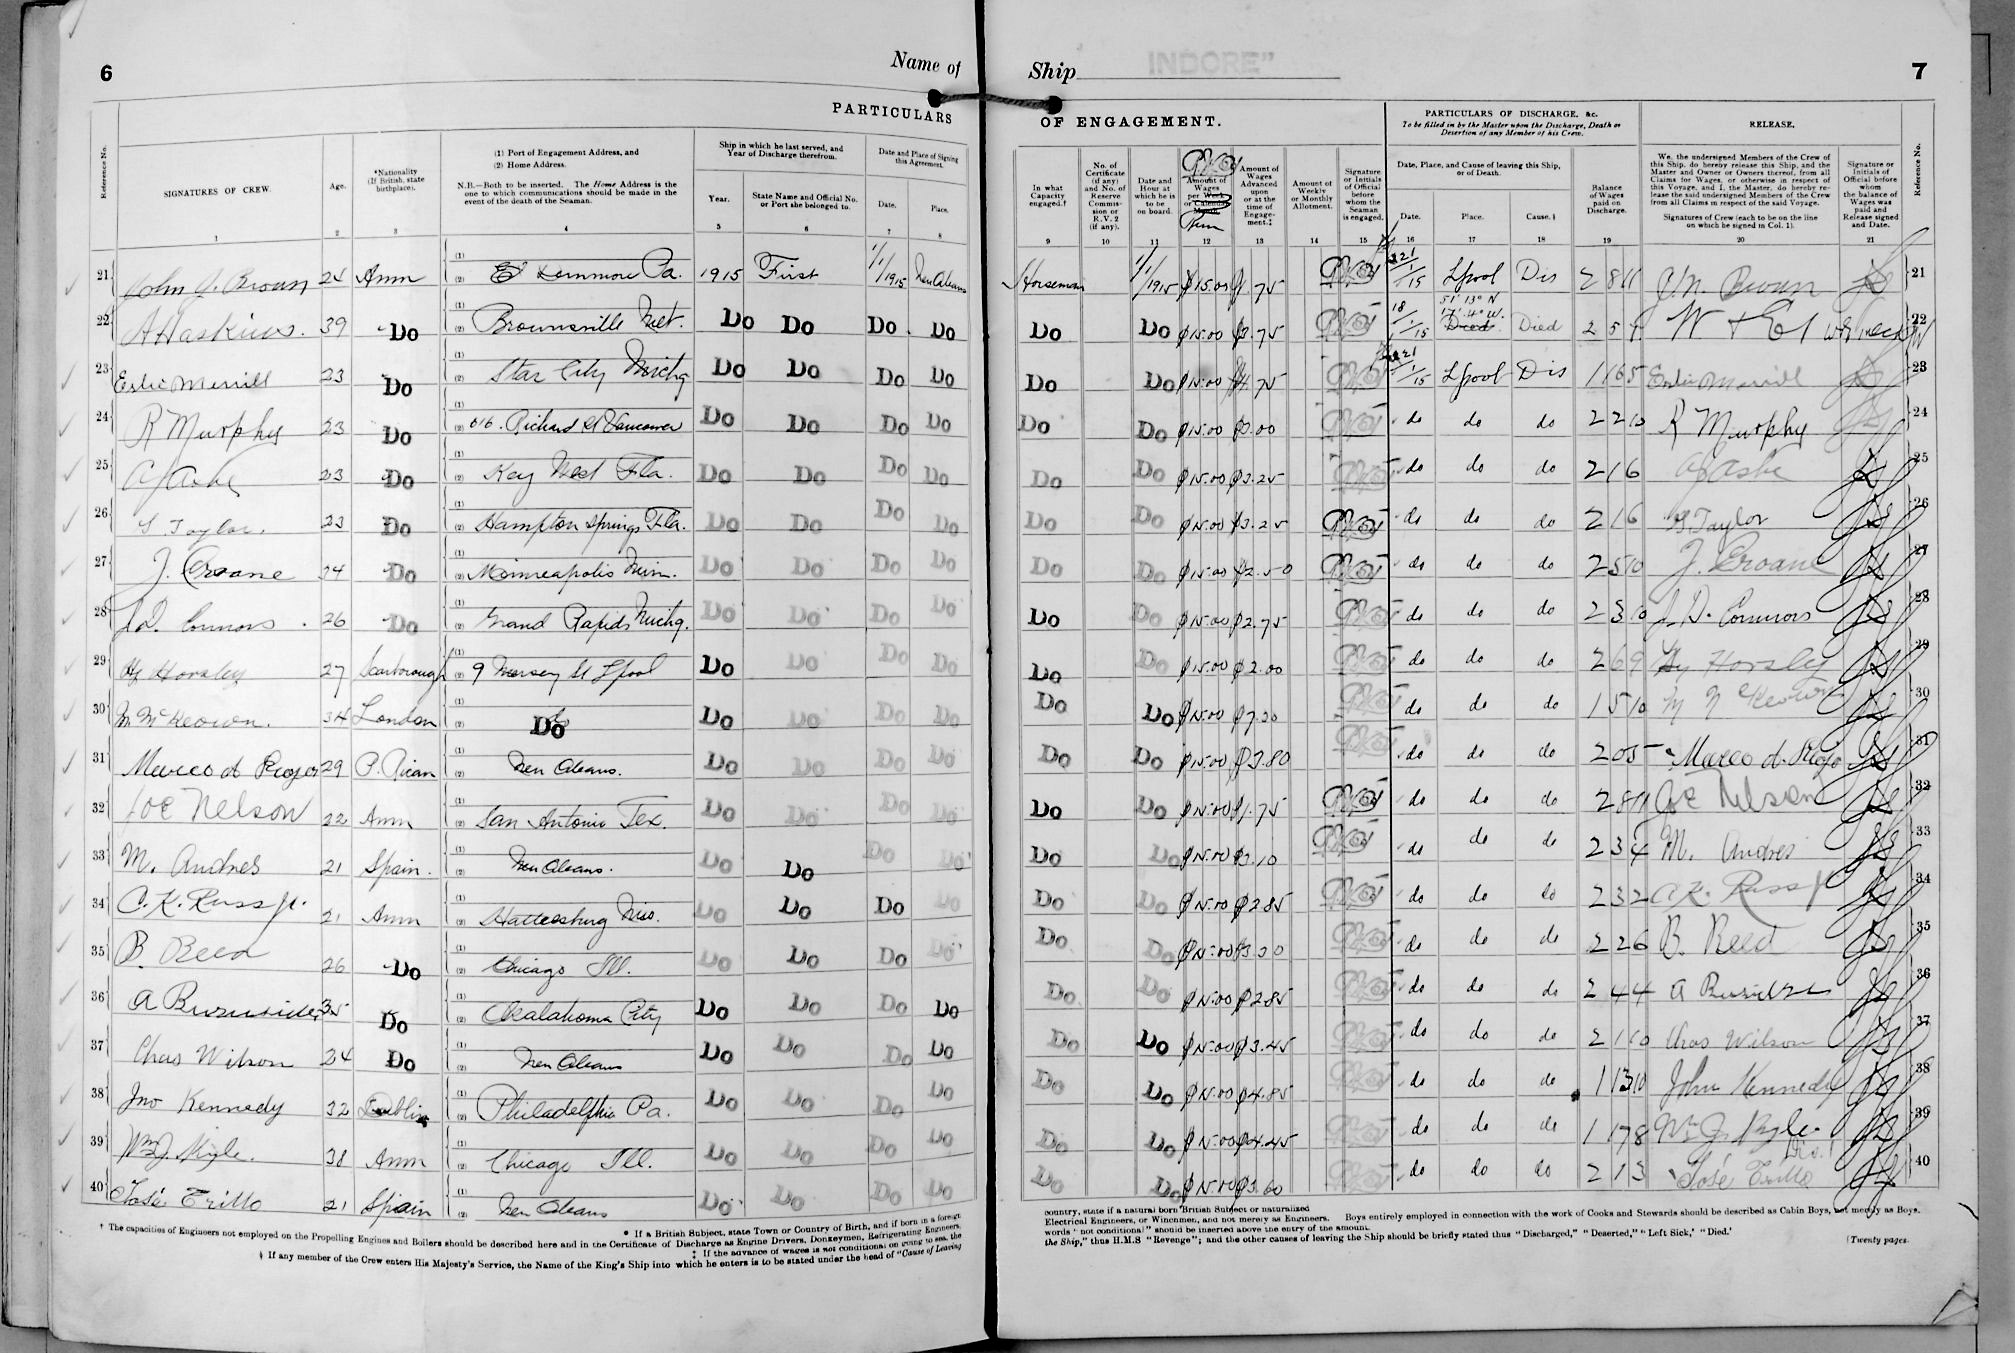 6
Name of
Ship INDORE"
7
PARTICULARS
OF ENGAGEMENT.
PARTICULARS OF DISCHARGE, &c.
To be filled in by the Master upon the Discharge, Death or Desertion of any Member of his Crew.
RELEASE.
Reference No.
SIGNATURES OF CREW.
Age.
*Nationality (If British, state birthplace).
(1) Port of Engagement Address, and
(2) Home Address.
N.B.—Both to be inserted. The Home Address is the one to which communications should be made in the event of the death of the Seaman.
Ship in which he last served, and Year of Discharge therefrom.
Year.
State Name and Official No. or Port she belonged to.
Date and Place of Signing this Agreement.
Date.
Place.
In what Capacity engaged.†
No. of Certificate (if any) and No. of Reserve Commission or R.V. 2 (if any).
Date and Hour at which he is to be on board.
Amount of Wages per Week or Calendar Month. Run
Amount of Wages Advanced upon or at the time of Engagement.‡
Amount of Weekly or Monthly Allotment.
Signature or Initials of Official before whom the Seaman is engaged.
Date, Place, and Cause of leaving this Ship, or of Death.
Date.
Place.
Cause.§
Balance of Wages paid on Discharge.
We, the undersigned Members of the Crew of this Ship, do hereby release this Ship, and the Master and Owner or Owners thereof, from all Claims for Wages, or otherwise in respect of this Voyage, and I, the Master, do hereby release the said undersigned Members of the Crew from all Claims in respect of the said Voyage.
Signatures of Crew (each to be on the line on which be signed in Col. 1).
Signature or Initials of Official before whom the balance of Wages was paid and Release signed and Date.
Reference No.
1 2 3 4 5 6 7 8 9 10 11 12 13 14 15 16 17 18 19 20 21
21 John J. Brown 24 Amn (1) (2) E Kenmore Pa. 1915 First 1/1/1915 New Orleans Horseman 1/1/1915 $15.00 $1.75 21/1/15 Lpool Dis 2 8 11 J. N. Brown 21
22 A Haskins. 39 Do (1) (2) Brownsville Net. Do Do Do Do Do Do $15.00 $3.75 18/1/15 51° 13° N 17° 4° W. Died 2 5 9 W & E 22
23 Eslie Merrill 23 Do (1) (2) Star City Michg Do Do Do Do Do Do $15.00 $4.75 21/1/15 Lpool Dis 1 16 5 Eslie Merrill 23
24 R Murphy 23 Do (1) (2) 616. Richard St Vancouver Do Do Do Do Do Do $15.00 $3.00 do do do 2 2 10 R Murphy 24
25 C J Ashe 23 Do (1) (2) Key West Fla. Do Do Do Do Do Do $15.00 $3.25 do do do 2 1 6 C J Ashe 25
26 G. Taylor. 23 Do (1) (2) Hampton Springs Fla. Do Do Do Do Do Do $15.00 $3.25 do do do 2 1 6 G. Taylor 26
27 J. Croane 34 Do (1) (2) Minneapolis Minn. Do Do Do Do Do Do $15.00 $2.50 do do do 2 5 10 J. Croane 27
28 J. D. Connors 26 Do (1) (2) Grand Rapids Michg. Do Do Do Do Do Do $15.00 $2.75 do do do 2 3 10 J. D. Connors 28
29 Hy Horsley 27 Scarborough (1) (2) 9 Mersey St Lpool Do Do Do Do Do Do $15.00 $2.00 do do do 2 6 9 Hy Horsley 29
30 M. McKeown. 34 London (1) (2) Do Do Do Do Do Do Do $15.00 $7.00 do do do 1 5 10 M McKeown 30
31 Marco d Riojo 29 P. Rican (1) (2) New Orleans. Do Do Do Do Do Do $15.00 $3.80 do do do 2 0 5 Marco d. Riojo 31
32 Joe Nelson 22 Amn (1) (2) San Antonio Tex. Do Do Do Do Do Do $15.00 $1.75 do do do 2 8 11 Joe Nelson 32
33 M. Andres 21 Spain. (1) (2) New Orleans. Do Do Do Do Do Do $15.00 $3.10 do do do 2 3 4 M. Andres 33
34 C. K. Russ Jr. 21 Amn (1) (2) Hattiesburg Miss. Do Do Do Do Do Do $15.00 $2.85 do do do 2 3 2 C. K. Russ Jr 34
35 B. Reed 26 Do (1) (2) Chicago Ill. Do Do Do Do Do Do $15.00 $3.30 do do do 2 2 6 B. Reed 35
36 A Burnside 35 Do (1) (2) Okalahoma City Do Do Do Do Do Do $15.00 $2.85 do do do 2 4 4 A Burnside 36
37 Chas Wilson 34 Do (1) (2) New Orleans Do Do Do Do Do Do $15.00 $3.45 do do do 2 1 10 Chas Wilson 37
38 Jno Kennedy 32 Dublin (1) (2) Philadelphia Pa. Do Do Do Do Do Do $15.00 $4.85 do do do 1 13 10 John Kennedy 38
39 Wm J. Kyle. 38 Amn (1) (2) Chicago Ill. Do Do Do Do Do Do $15.00 $4.45 do do do 1 17 8 Wm J. Kyle. 39
40 José Trillo 21 Spain (1) (2) New Orleans Do Do Do Do Do Do $15.00 $3.60 do do do 2 1 3 José Trillo 40
* If a British Subject, state Town or Country of Birth, and if born in a foreign country, state if a natural born British Subject or naturalized
† The capacities of Engineers not employed on the Propelling Engines and Boilers should be described here and in the Certificate of Discharge as Engine Drivers, Donkeymen, Refrigerating Engineers, Electrical Engineers, or Winchmen, and not merely as Engineers. Boys entirely employed in connection with the work of Cooks and Stewards should be described as Cabin Boys, not merely as Boys.
‡ If the advance of wages is not conditional on going to sea, the words "not conditional" should be inserted above the entry of the amount.
§ If any member of the Crew enters His Majesty's Service, the Name of the King's Ship into which he enters is to be stated under the head of "Cause of Leaving the Ship," thus H.M.S "Revenge"; and the other causes of leaving the Ship should be briefly stated thus "Discharged," "Deserted," "Left Sick," "Died."
(Twenty pages.